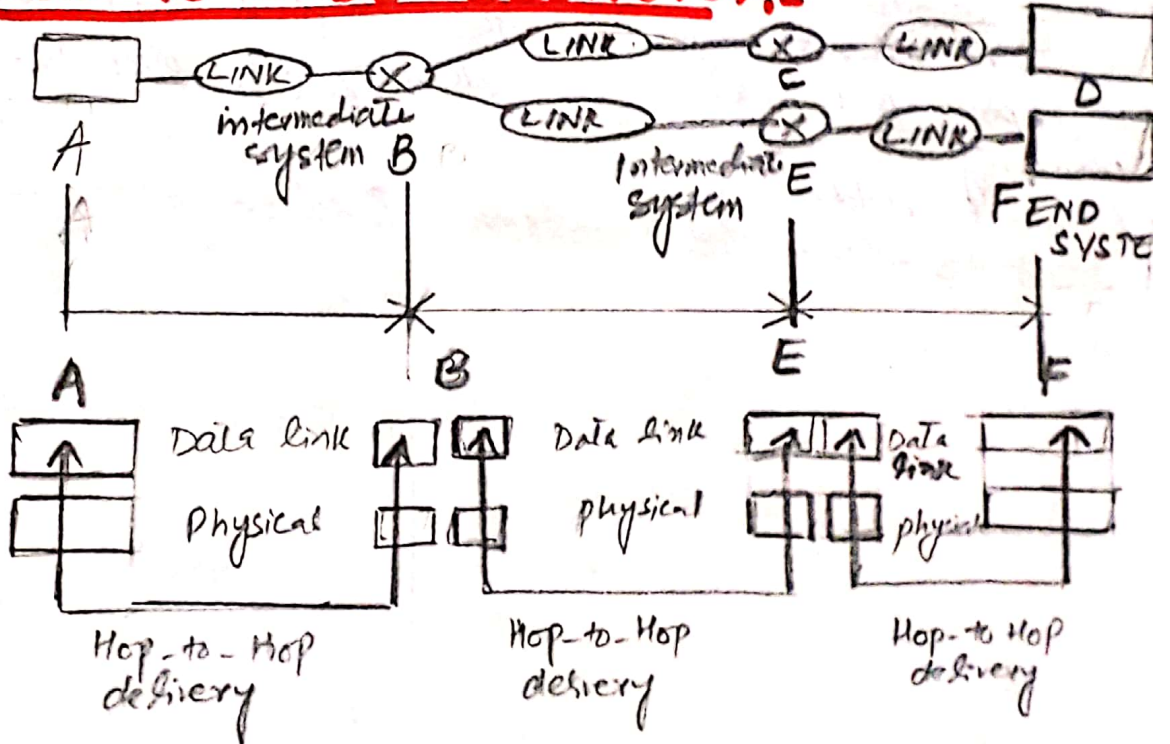 LINK
LINK
LINK
C
D
A
intermediate
system
B
LINK
LINK
Intermediate
system
E
F END
SYSTE
A
B
E
F
Data link
Data link
Data
link
Physical
physical
physical
Hop-to-Hop
delivery
Hop-to-Hop
delivery
Hop-to Hop
delivery